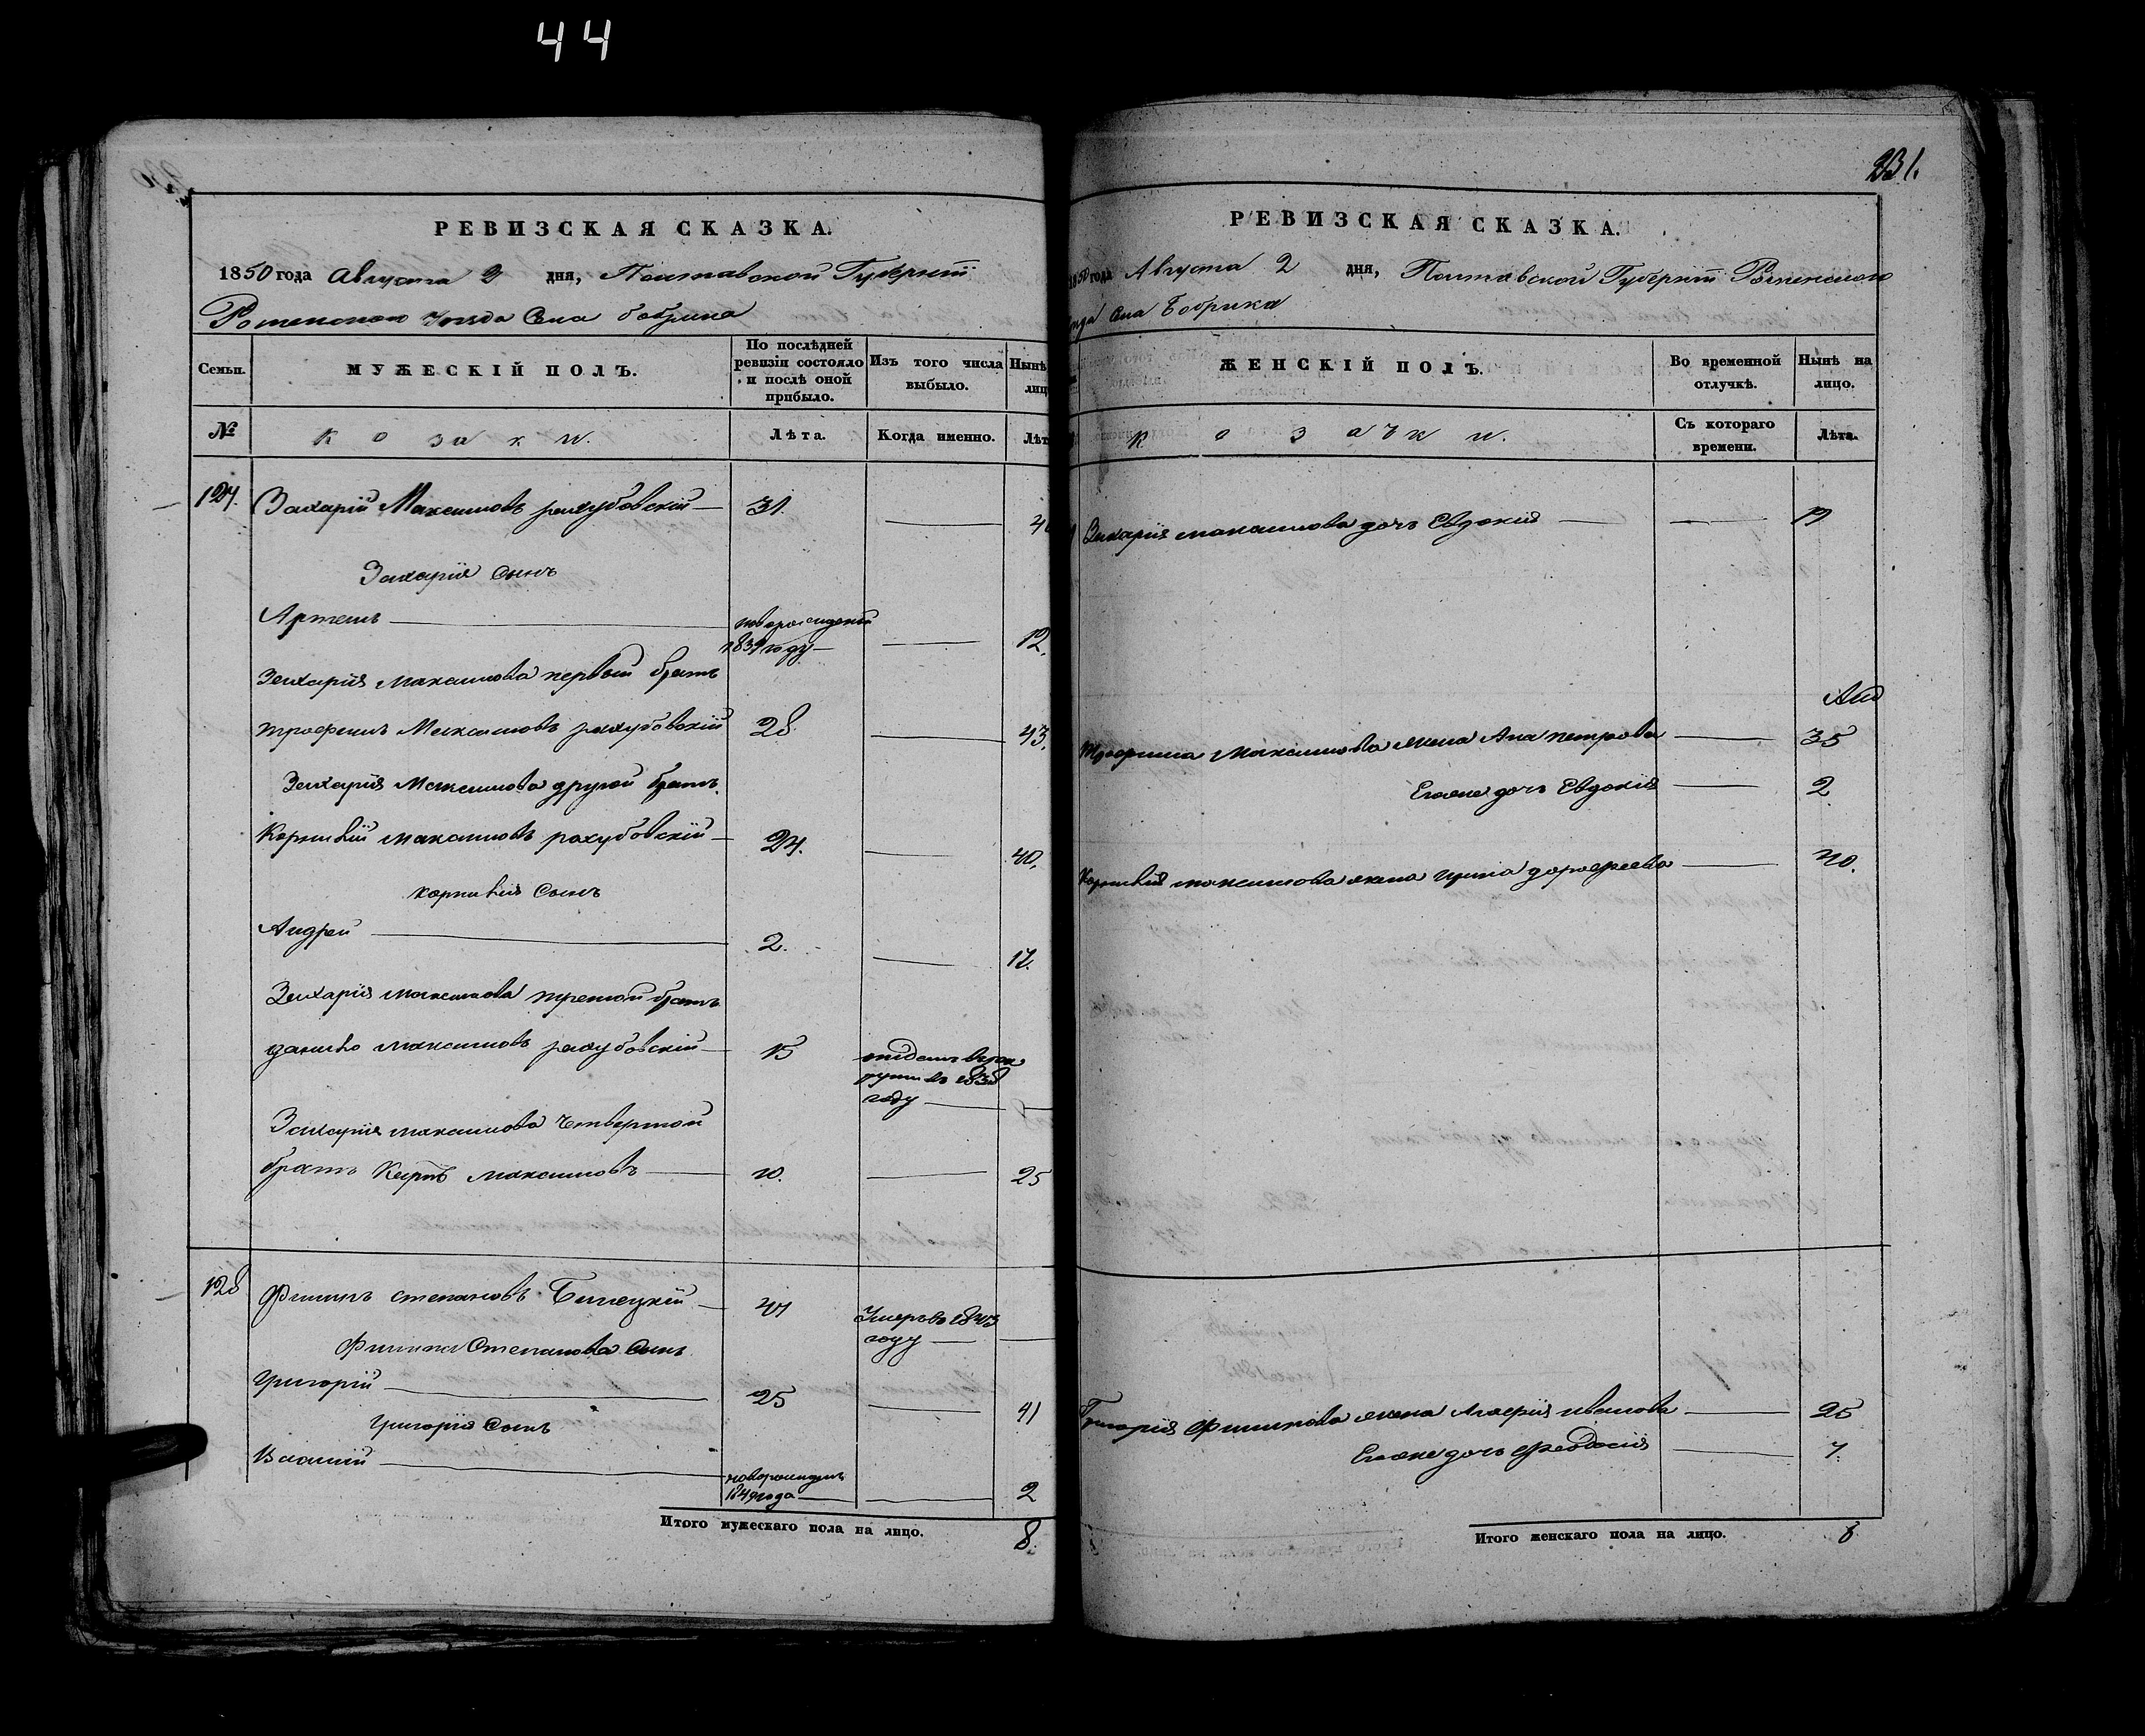 44
РЕВИЗСКАЯ СКАЗКА.
1850 года Августа 2 дня, Полтавской Губернїи
Роменского уезда Села бобрика
Семьи.
МУЖЕСКІЙ ПОЛЪ.
По послѣдней ревизіи состояло и послѣ оной прибыло.
Изъ того числа выбыло.
Нынѣ лиц
№
козаки.
Лѣта.
Когда именно.
Лѣт
127. Захарїй Максимовъ рахубовскїй 31.
Захарїя Сынъ
Артемъ новорожденый 1839 году 12.
Захарїя Максимова первый братъ
трофимъ Максимовъ рахубовскїй 28. 43.
Захарїя Максимова другой братъ
Корнивїй максимовъ рахубовскїй 24. 40.
корнивїя Сынъ
Андрей 2. 17.
Захарїя максимова третой братъ
данило максимовъ рахубовскїй 15 отданъ в рекруты въ 1838 году
Захарїя максимова Четвертой
братъ максимовъ 10. 25
128 Филипъ степановъ Билецкїй 47 Умеръ въ 1843 году
Филипа Степанова Сынъ
Григорїй 25 41
Григорїя Сынъ
Василий новорожденъ 1849 года 2
Итого мужескаго пола на лицо. 8.
231.
РЕВИЗСКАЯ СКАЗКА.
1850 года Августа 2 дня, Полтавской Губернїи Роменского
езда Села Бобрика
ЖЕНСКІЙ ПОЛЪ.
Во временной отлучкѣ.
Нынѣ на лицо.
козачки.
Съ котораго времени.
Лѣта.
Захарїя максимова дочь Евдокия
Трофима Максимова жена Ана петрова 35
Егоже дочь Евдокия 2
Корнивїя максимова жена ирина дорофеева 40.
Григорїя Филипова жена иванова 25
Егоже дочь Феодосия 7.
Итого женскаго пола на лицо. 6